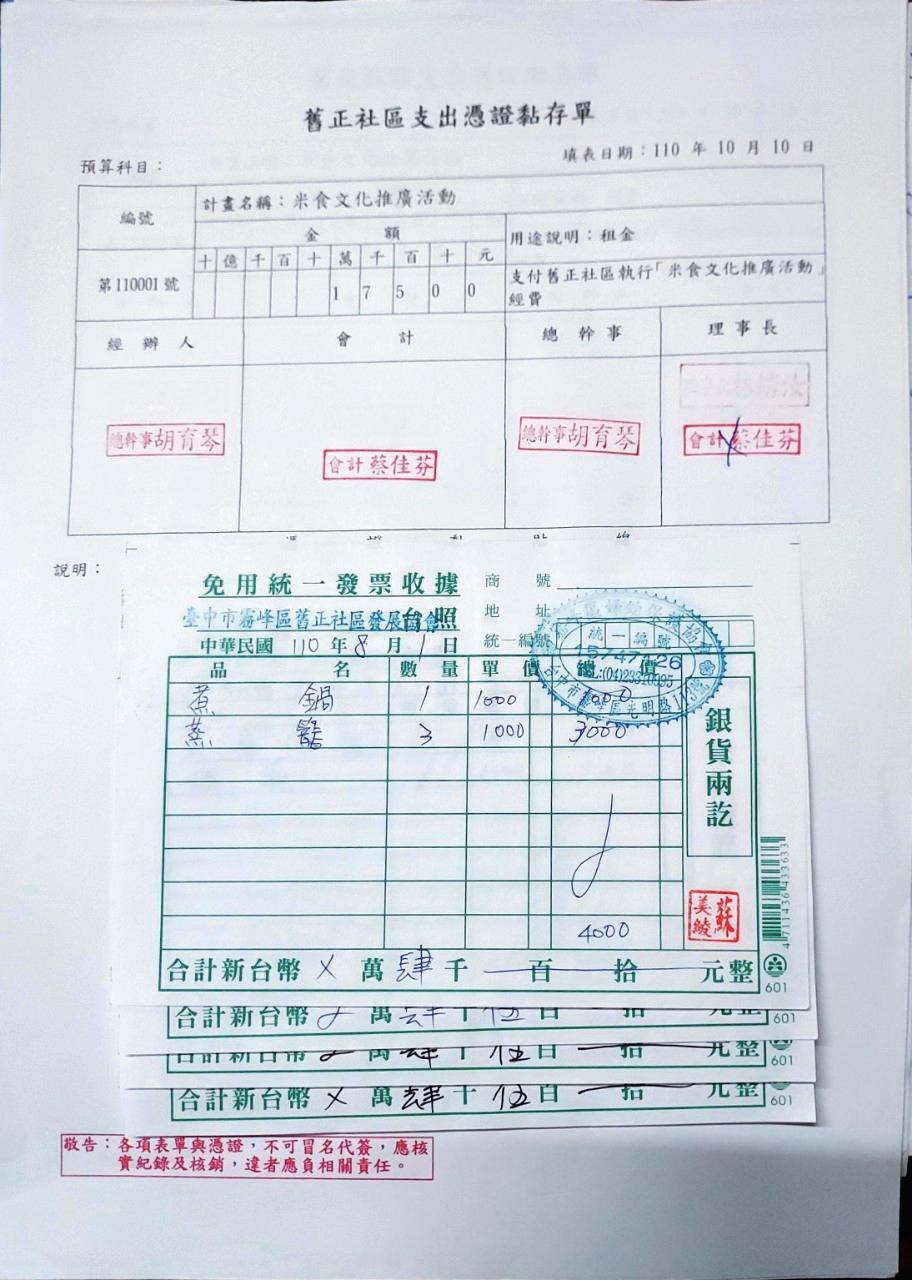 舊正社區支出憑證黏存單
預算科目：
填表日期：110 年 10 月 10 日
編號
計畫名稱：米食文化推廣活動
金 額
用途說明：租金
十 億 千 百 十 萬 千 百 十 元
第110001號
1 7 5 0 0
支付舊正社區執行「米食文化推廣活動」
經費
經辦人 會計 總幹事 理事長
總幹事胡育琴
會計 蔡佳芬
總幹事胡育琴
會計 蔡佳芬
說明：
免用統一發票收據
商 號
臺中市霧峰區舊正社區發展協會 台照
地 址
中華民國 110 年 8 月 1 日
統一編號
統一編號
15747126
品 名 數量 單價 總價
煮鍋 1 1000 1000
蒸籠 3 1000 3000
銀貨兩訖
4000
蘇美綾
4711436433633
合計新台幣 X 萬 肆 千 百 拾 元整
601
合計新台幣 萬 肆 千 伍 百 拾 元整
601
合計新台幣 萬 肆 千 伍 百 拾 元整
601
合計新台幣 X 萬 肆 千 伍 百 拾 元整
601
敬告：各項表單與憑證，不可冒名代簽，應核
實紀錄及核銷，違者應負相關責任。